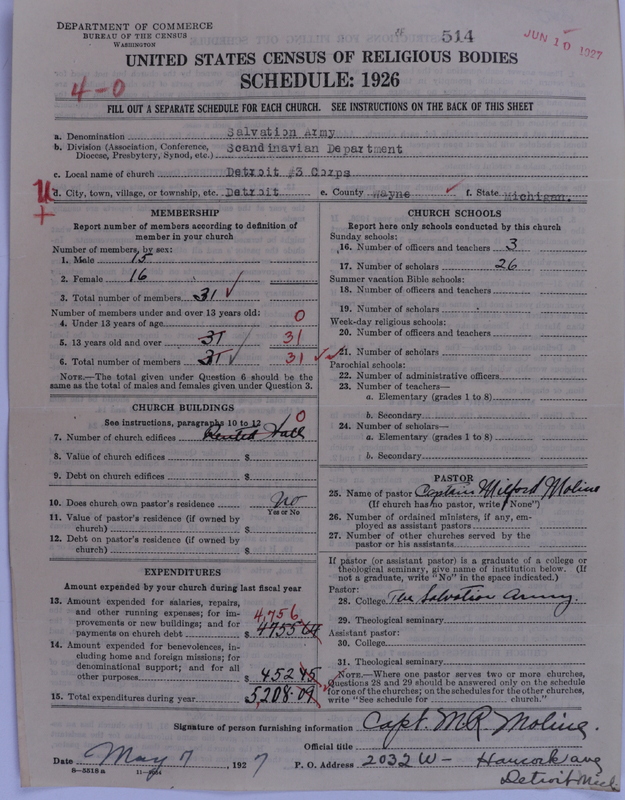 DEPARTMENT OF COMMERCE
BUREAU OF THE CENSUS
WASHINGTON
514
JUN 10 1927
UNITED STATES CENSUS OF RELIGIOUS BODIES
SCHEDULE: 1926
4-0
FILL OUT A SEPARATE SCHEDULE FOR EACH CHURCH. SEE INSTRUCTIONS ON THE BACK OF THIS SHEET
a. Denomination Salvation Army
b. Division (Association, Conference, Diocese, Presbytery, Synod, etc.) Scandinavian Department
c. Local name of church Detroit #3 Corps
d. City, town, village, or township, etc. Detroit e. County Wayne f. State Michigan.
MEMBERSHIP
Report number of members according to definition of
member in your church
Number of members, by sex:
1. Male 15
2. Female 16
3. Total number of members 31
Number of members under and over 13 years old:
4. Under 13 years of age 0
5. 13 years old and over 31 31
6. Total number of members 31 31
NOTE.—The total given under Question 6 should be the
same as the total of males and females given under Question 3.
CHURCH BUILDINGS
See instructions, paragraphs 10 to 12
7. Number of church edifices Rented Hall 0
8. Value of church edifices $
9. Debt on church edifices $
10. Does church own pastor's residence No
Yes or No
11. Value of pastor's residence (if owned by
church) $
12. Debt on pastor's residence (if owned by
church) $
EXPENDITURES
Amount expended by your church during last fiscal year
13. Amount expended for salaries, repairs,
and other running expenses; for im-
provements or new buildings; and for 4,756
payments on church debt $ 4755 64
14. Amount expended for benevolences, in-
cluding home and foreign missions; for
denominational support; and for all
other purposes $ 452 45
15. Total expenditures during year $ 5,208.09
CHURCH SCHOOLS
Report here only schools conducted by this church
Sunday schools:
16. Number of officers and teachers 3
17. Number of scholars 26
Summer vacation Bible schools:
18. Number of officers and teachers
19. Number of scholars
Week-day religious schools:
20. Number of officers and teachers
21. Number of scholars
Parochial schools:
22. Number of administrative officers
23. Number of teachers—
a. Elementary (grades 1 to 8)
b. Secondary
24. Number of scholars—
a. Elementary (grades 1 to 8)
b. Secondary
PASTOR
25. Name of pastor Captain Milford Moline
(If church has no pastor, write "None")
26. Number of ordained ministers, if any, em-
ployed as assistant pastors
27. Number of other churches served by the
pastor or his assistants
If pastor (or assistant pastor) is a graduate of a college or
theological seminary, give name of institution below. (If
not a graduate, write "No" in the space indicated.)
Pastor:
28. College The Salvation Army.
29. Theological seminary
Assistant pastor:
30. College
31. Theological seminary
NOTE.—Where one pastor serves two or more churches,
Questions 28 and 29 should be answered only on the schedule
for one of the churches; on the schedules for the other churches,
write "See schedule for church."
Signature of person furnishing information Capt. M.R. Moline.
Official title
Date May 7, 1927 P. O. Address 2032 W- Hancock ave
Detroit Mich
8-5518 a